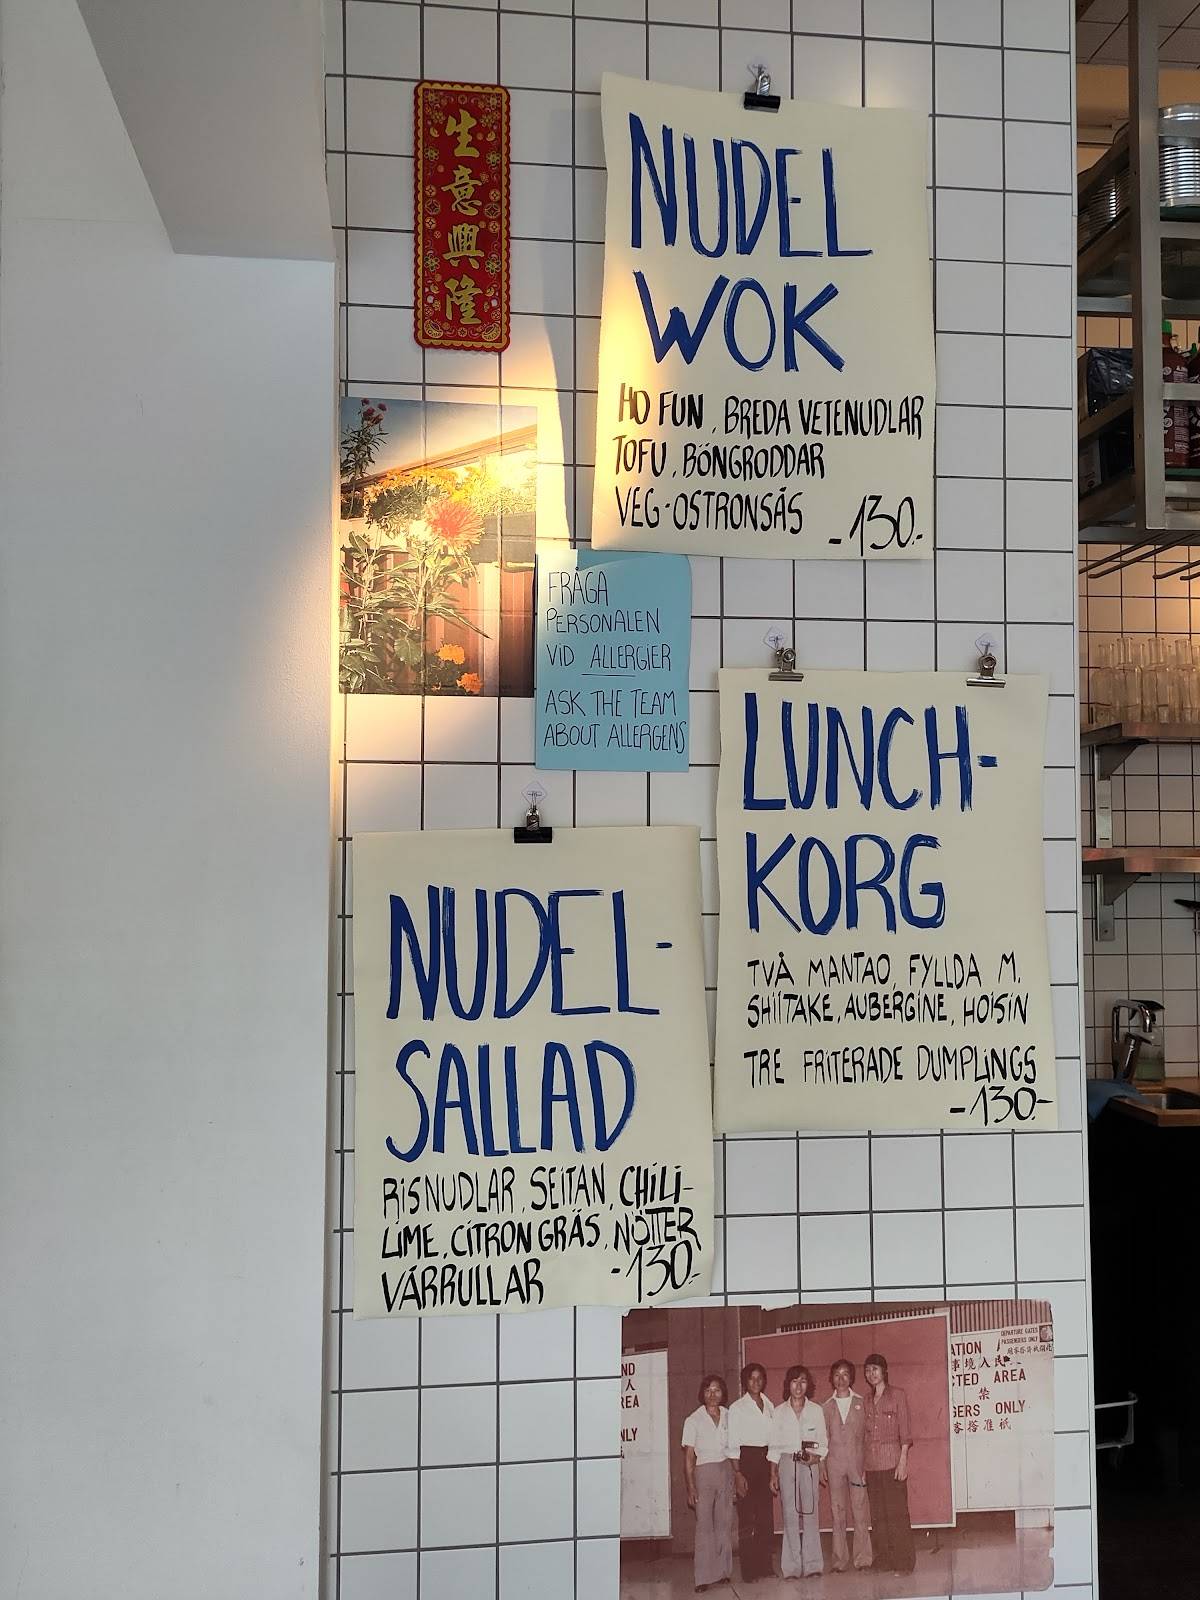 生意興隆
NUDEL
WOK
HO FUN, BREDA VETENUDLAR
TOFU, BÖNGRODDAR
VEG-OSTRONSÅS -130.-
FRÅGA
PERSONALEN
VID ALLERGIER
ASK THE TEAM
ABOUT ALLERGENS
LUNCH-
KORG
TVÅ MANTAO, FYLLDA M.
SHIITAKE, AUBERGINE, HOISIN
TRE FRITERADE DUMPLINGS
-130-
NUDEL-
SALLAD
RISNUDLAR, SEITAN, CHILI-
LIME, CITRONGRÄS, NÖTTER
VÅRRULLAR -130.-
DEPARTURE GATES
PASSENGERS ONLY
ATION
境人民
CTED AREA
禁
GERS ONLY
客搭准祇
ND
人
REA
NLY